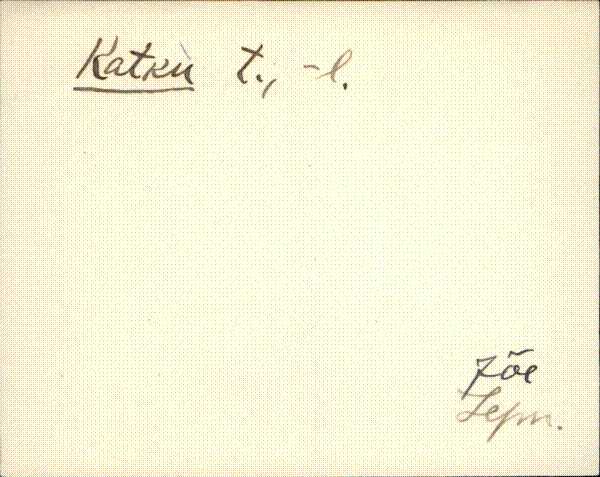 Katku t., -l.
Jõe
Lepn.